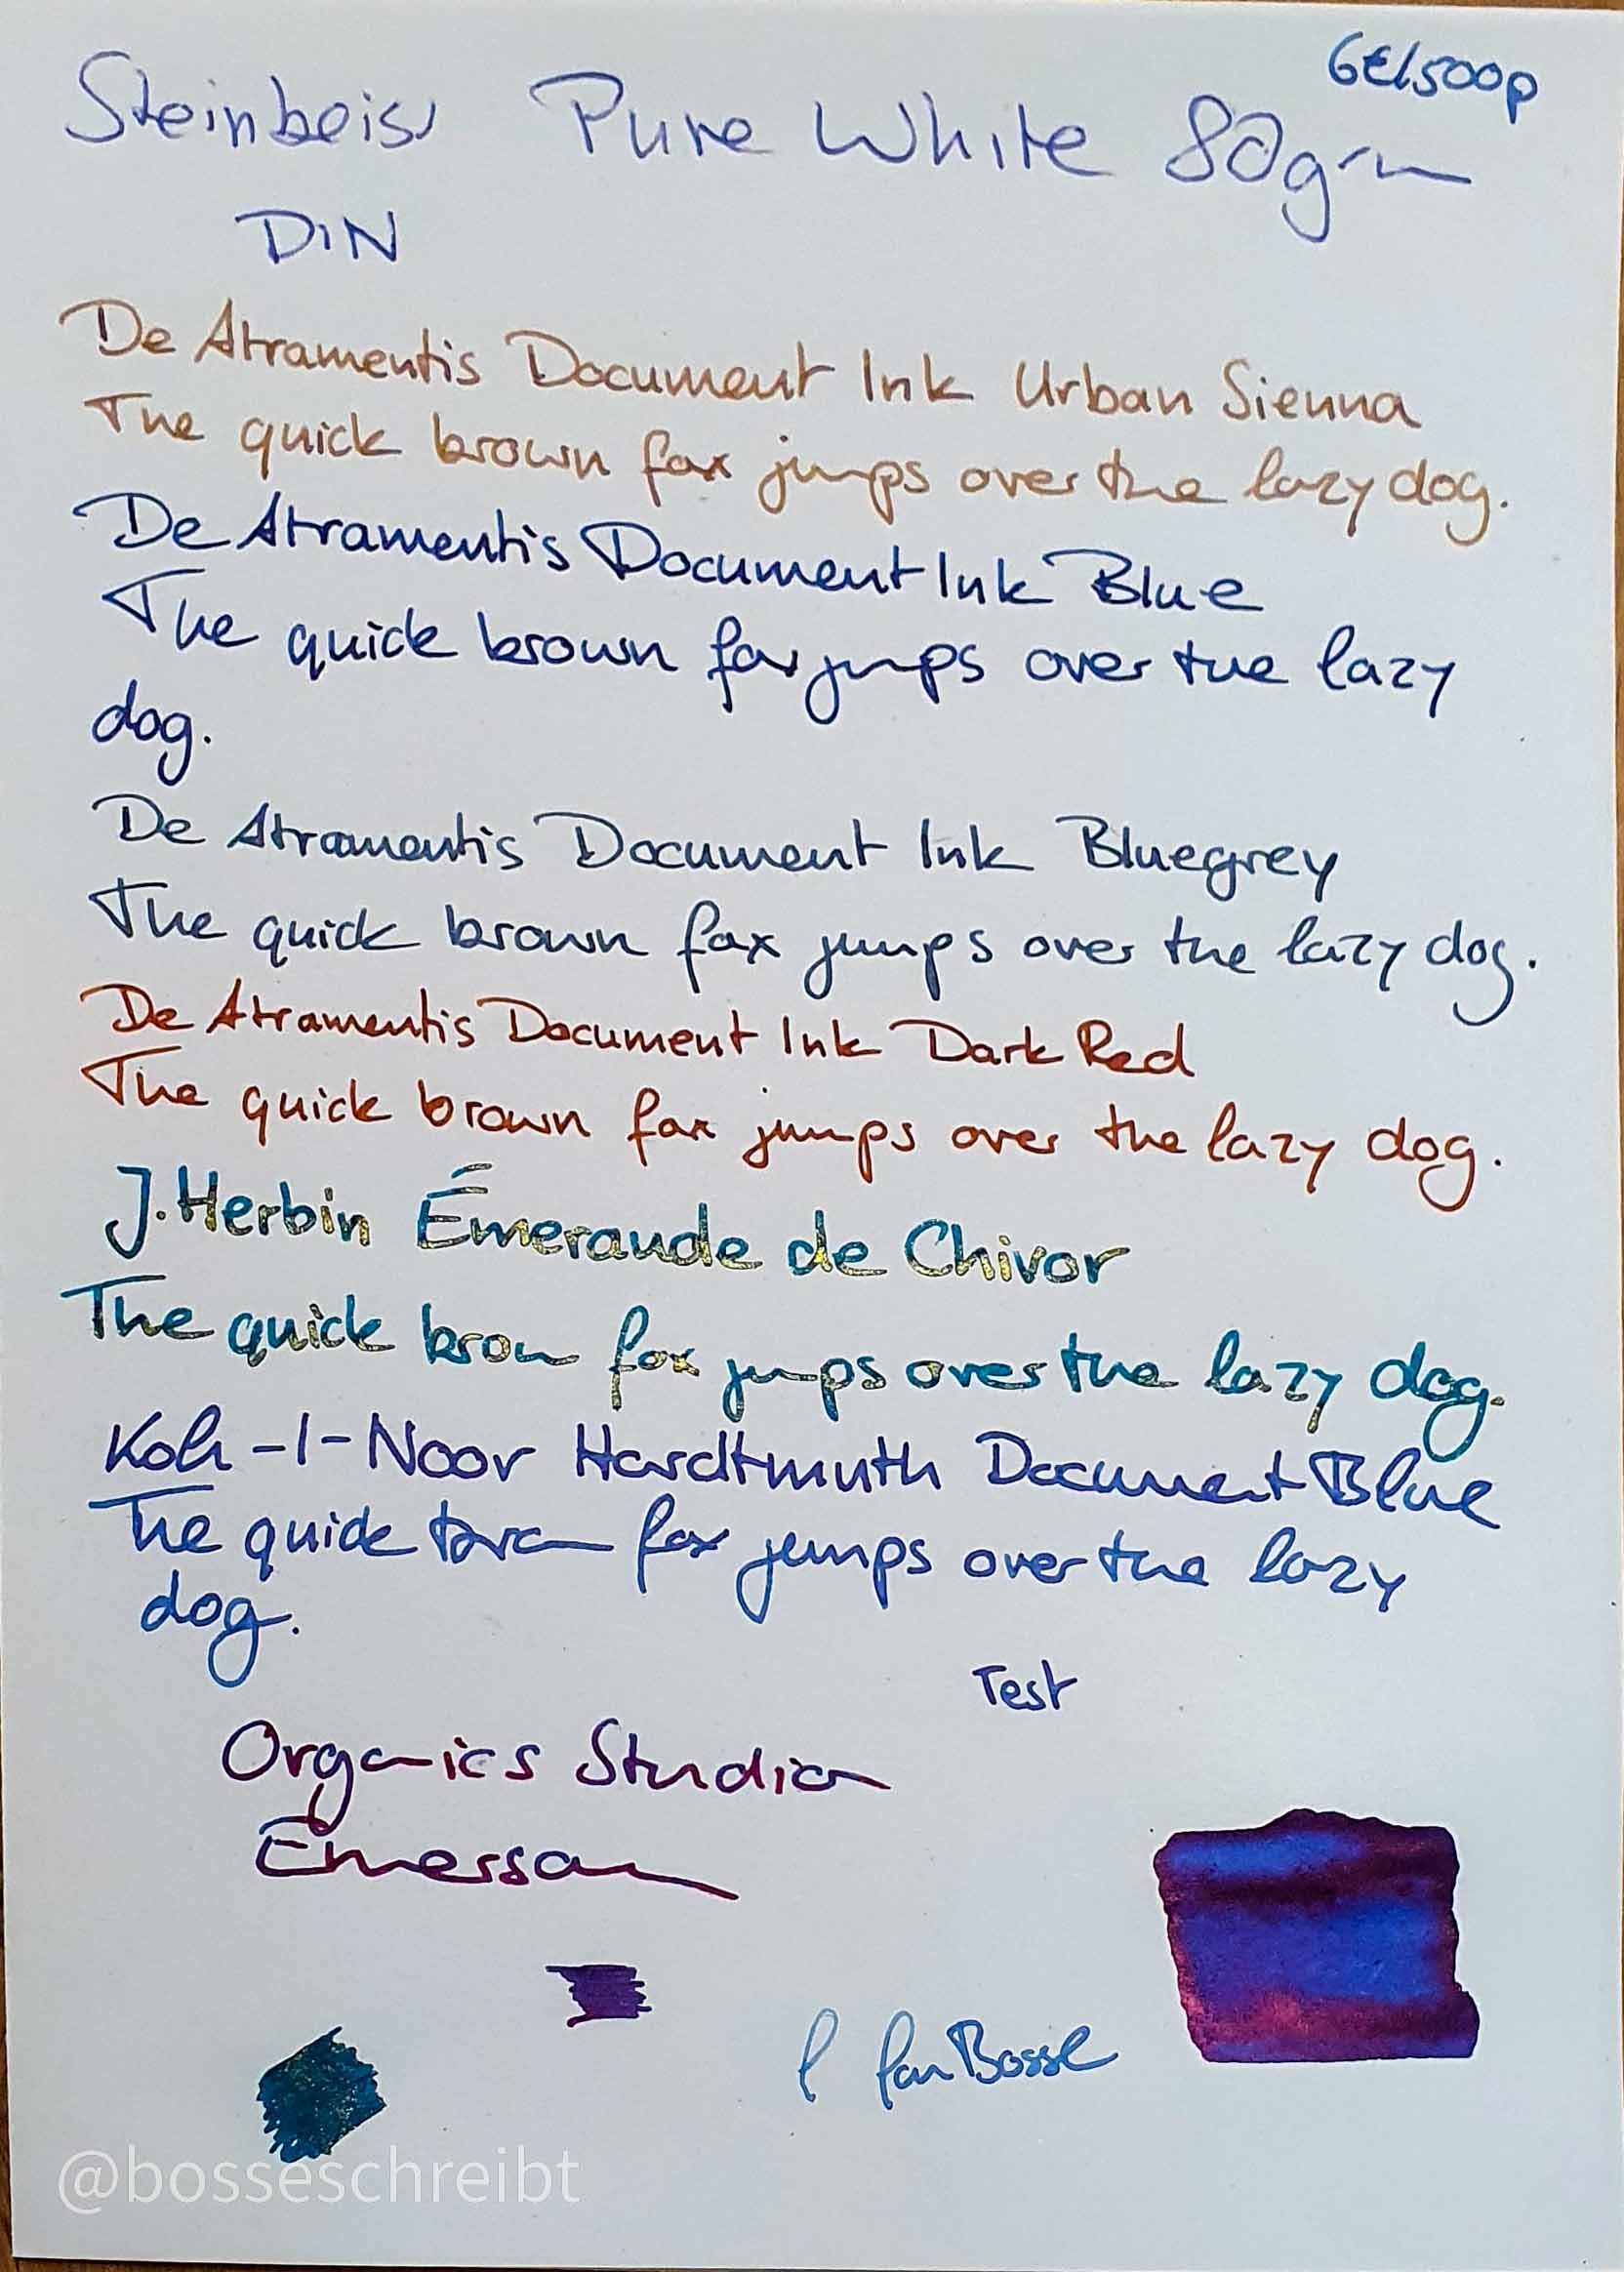 6€/500p
Steinbeis Pure White 80grm
DIN
De Atramentis Document Ink Urban Sienna
The quick brown fox jumps over the lazy dog.
De Atramentis Document Ink Blue
The quick brown fox jumps over the lazy
dog.
De Atramentis Document Ink Bluegrey
The quick brown fox jumps over the lazy dog.
De Atramentis Document Ink Dark Red
The quick brown fox jumps over the lazy dog.
J. Herbin Émeraude de Chivor
The quick brow fox jumps over the lazy dog.
Koh-I-Noor Hardtmuth Document Blue
The quick fox jumps over the lazy
dog.
Test
Organics Studio
Emerson
Bosse
@bosseschreibt